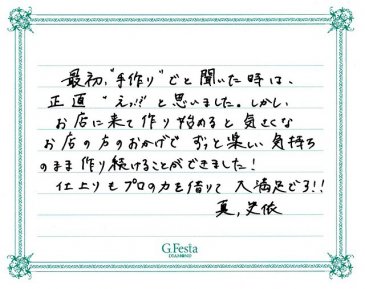 最初、"手作り"でと聞いた時は、
正直 "えっ!?" と思いました。しかし
お店に来て作り始めると気さくな
お店の方のおかげで ずっと楽しい気持ち
のまま作り続けることができました!
仕上りもプロの力を借りて 大満足です!!
真, 史依
G.Festa
DIAMOND